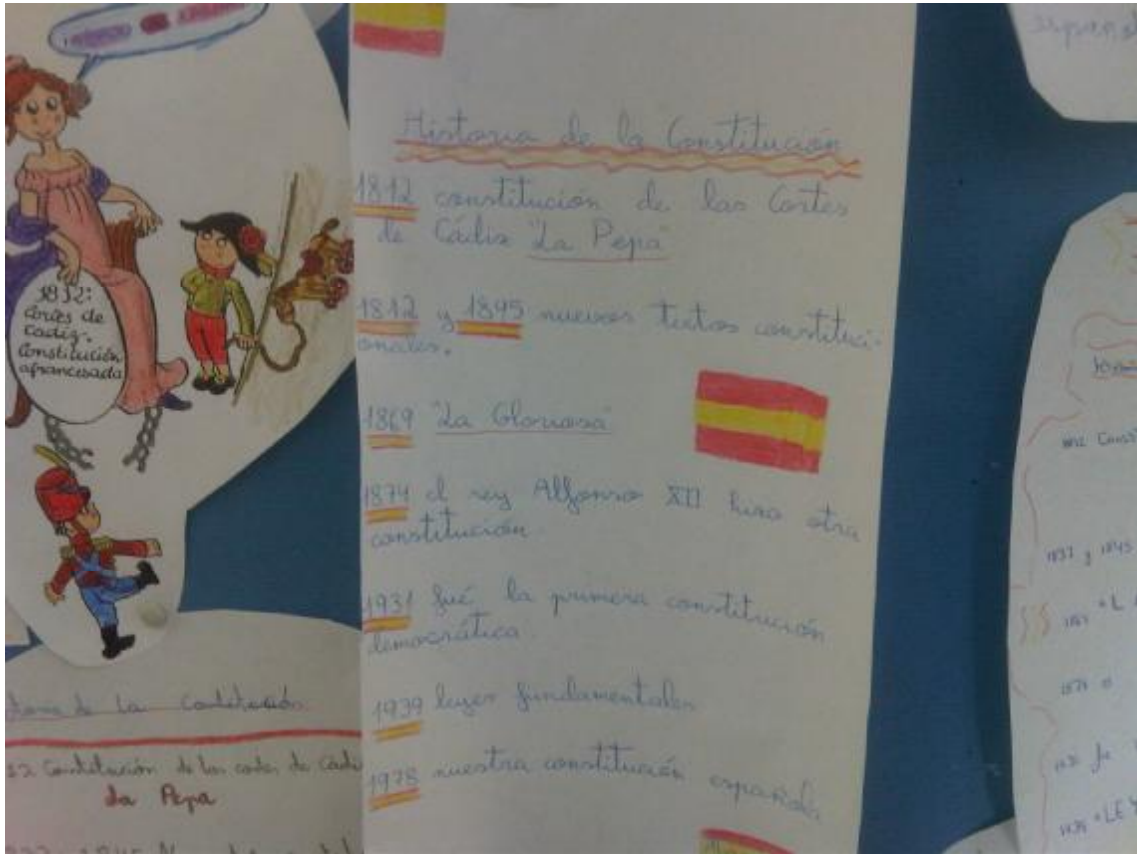 1812:
Cortes de
Cadiz.
Constitución
afrancesada
Historia de la Constitución
1812 constitución de las Cortes
de Cádiz "La Pepa"
1812 y 1895 nuevos textos constituci-
onales.
1869 "La Gloriosa"
1874 el rey Alfonso XII hizo otra
constitución.
1931 fué la primera constitución
democrática.
1939 leyes fundamentales
1978 nuestra constitución española
de la Constitución
Constitución de las cortes de Cádi
La Pepa
español
1812 Const
1837 y 1845
1869 "L
1931 fe
1939 "LEY